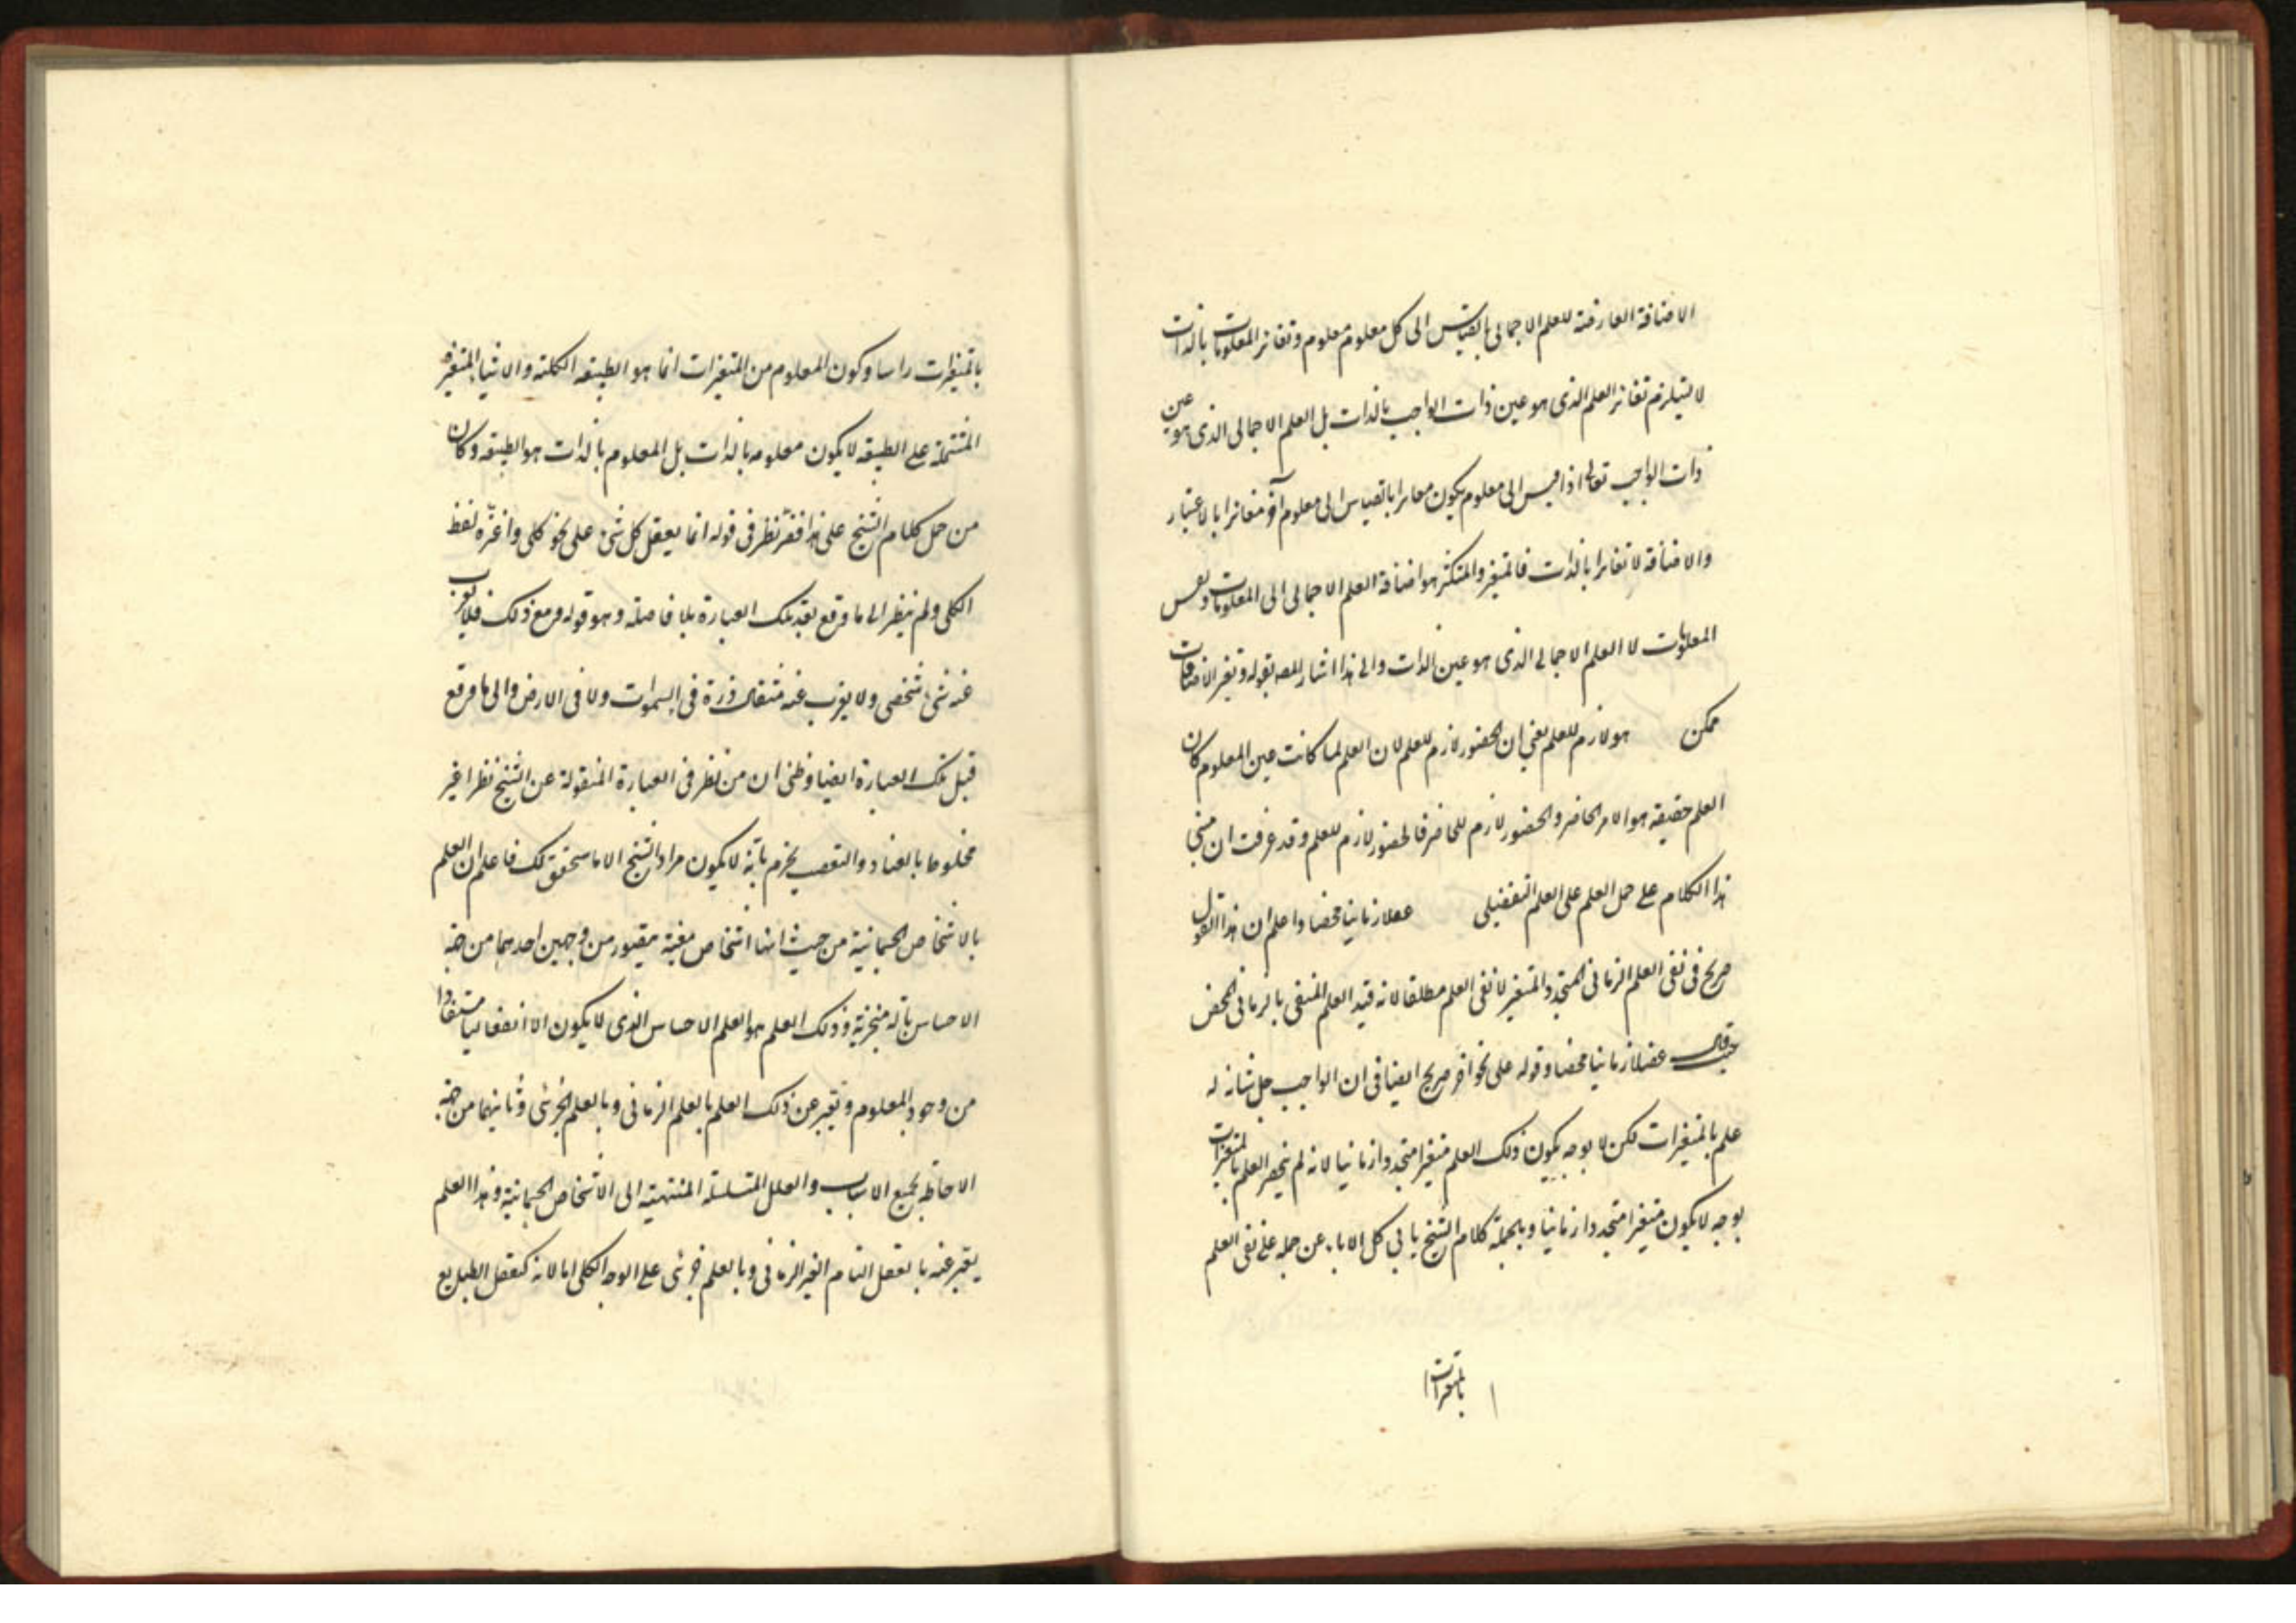 الاضافة العارضة للعلم الاجمالى بالقياس الى كل معلوم معلوم وتغائر المعلومات بالذات
لا يستلزم تغائر العلم الذى هو عين ذات الواجب بالذات بل العلم الاجمالى الذى هو عين
ذات الواجب تعالى اذا قيس الى معلوم يكون مغايرا بالقياس الى معلوم آخر مغائرا بالاعتبار
والاضافة لا تغائرا بالذات فالمتغير والمتكثر هو اضافة العلم الاجمالى الى المعلومات ونفس
المعلومات لا العلم الاجمالى الذى هو عين الذات والى هذا اشار المصه بقوله وتغير الاضافات
ممكن هو لازم للعلم يعنى ان الحضور لازم للعلم لان العلم لما كانت عين المعلوم كان
العلم حقيقه هو الامر الحاضر والحضور لازم للحاضر فالحضور لازم للعلم وقد عرفت ان مبنى
هذا الكلام على حمل العلم على العلم التفصيلى عقلا زمانيا محضا واعلم ان هذا القول
صريح فى نفى العلم الزمانى المتجدد المتغير لا نفى العلم مطلقا لانه قيد العلم المنفى بالزمانى المحض
حيث قال عقلا زمانيا محضا وقوله على نحو آخر صريح ايضا فى ان الواجب جل شانه له
علم بالمتغيرات لكن لا بوجه يكون ذلك العلم متغيرا متجددا زمانيا لانه لم ينحصر العلم بالمتغيرات
بوجه لا يكون متغيرا متجددا زمانيا وبالجملة كلام الشيخ يابى كل الاباء عن حمله على نفى العلم
بالمتغيرات
بالمتغيرات راسا وكون المعلوم من المتغيرات انما هو الطبيعه الكلية والاشياء المتغيرة
المشتملة على الطبيعه لا يكون معلومه بالذات بل المعلوم بالذات هو الطبيعه وكان
من حمل كلام الشيخ على هذا قصر نظر فى قوله انما يعقل كل شئ على نحو كلى واغره لفظ
الكلى ولم ينظر الى ما وقع بعد تلك العبارة بلا فاصلة وهو قوله ومع ذلك فلا يعزب
عنه شئ شخصى ولا يعزب عنه مثقال ذرة فى السموات ولا فى الارض والى ما وقع
قبل تلك العبارة ايضا وظنى ان من نظر فى العبارة المنقولة عن الشيخ نظرا غير
مخلوطا بالعناد والتعصب يجزم بانه لا يكون مراد الشيخ الا ما سنحقق لك فاعلم ان العلم
بالاشخاص الجسمانية من حيث انها اشخاص معينة يتصور من وجهين احدهما من جهة
الاحساس بآلة متجزية وذلك العلم هو العلم الاحساس الذى لا يكون الا انفعاليا مستفادا
من وجود المعلوم وتعبر عن ذلك العلم بالعلم الزمانى وبالعلم الجزئى وثانيهما من جهة
الاحاطه بجميع الاسباب والعلل المتسلسلة المنتهية الى الاشخاص الجسمانية وهذا العلم
يعبر عنه بالعقل التام الغير الزمانى وبالعلم جزئى على الوجه الكلى اما لانه كتعقل الطبايع